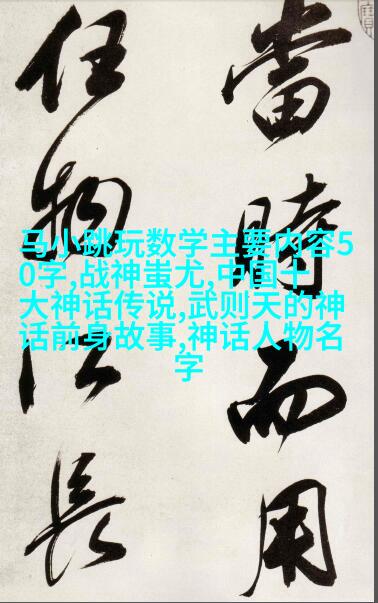 當時而用
任物長
马小跳玩数学主要内容5
0字,战神蚩尤,中国十
大神话传说,武则天的神
话前身故事,神话人物名
字